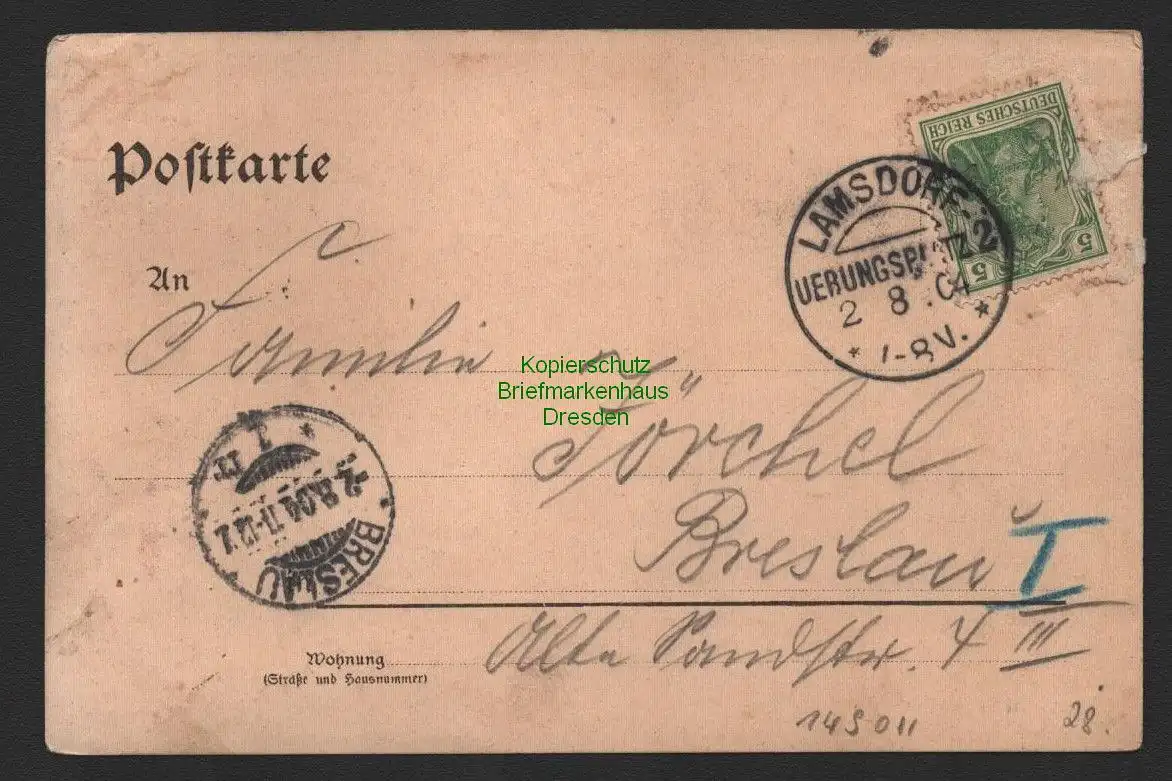 Postkarte
DEUTSCHES REICH
5 5
LAMSDORF-2
UEBUNGSPLATZ
2 8 04
* 7-8V. *
An
Familie
Kopierschutz
Briefmarkenhaus
Dresden
Görchel
2.8.04. 11-12 V.
BRESLAU
Breslau I
Wohnung
(Straße und Hausnummer)
Alte Sandstr. 4 III
14S011
28.